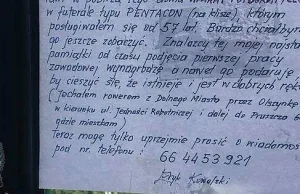 w futerale typu PENTACON (na klisze), którym
posługiwałem się od 57 lat. Bardzo chciałbym
go jeszcze zobaczyć. Znalazcy tej mojej najsta
pamiątki od czasu podjęcia pierwszej pracy
zawodowej wynagrodzę a nawet go podaruję
by cieszyć się, że istnieje i jest w dobrych ręka
(Jechałem rowerem z Dolnego Miasta przez Olszynkę
w kierunku ul. Jedności Robotniczej i dalej do Pruszcza G
gdzie mieszkam)
Teraz mogę tylko uprzejmie prosić o wiadomoś
pod nr. telefonu: 664453921
Eryk Kowalski